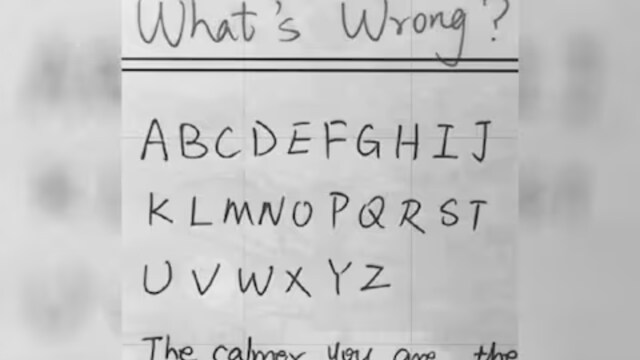 What's Wrong?
A B C D E F G H I J
K L M N O P Q R S T
U V W X Y Z
The calmer you are the